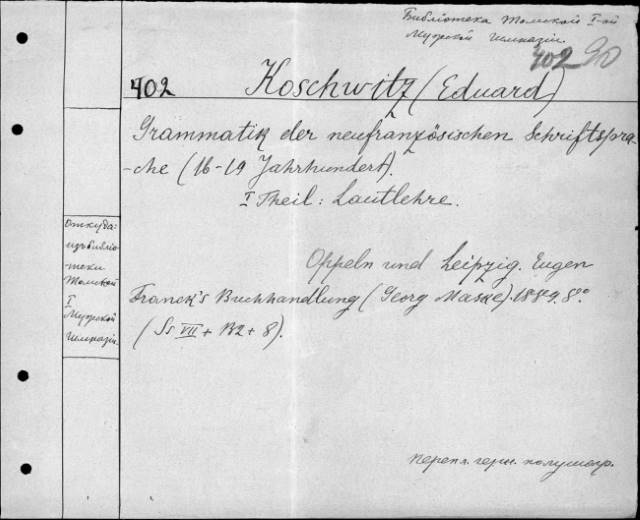 Библиотека Томской I-ой
Мужской Гимназіи.
402 90
402 Koschwitz (Eduard)
Grammatik der neufranzösischen Schriftspra-
-che (16-19 Jahrhundert).
I Theil: Lautlehre.
Откуда:
изъ библіо-
-теки
Томской
I
Мужской
Гимназіи.
Oppeln und Leipzig. Eugen
Franck's Buchhandlung (Georg Maske). 1889. 8°
(Ss VII + 132 + 8).
перепл. черн. полушагр.